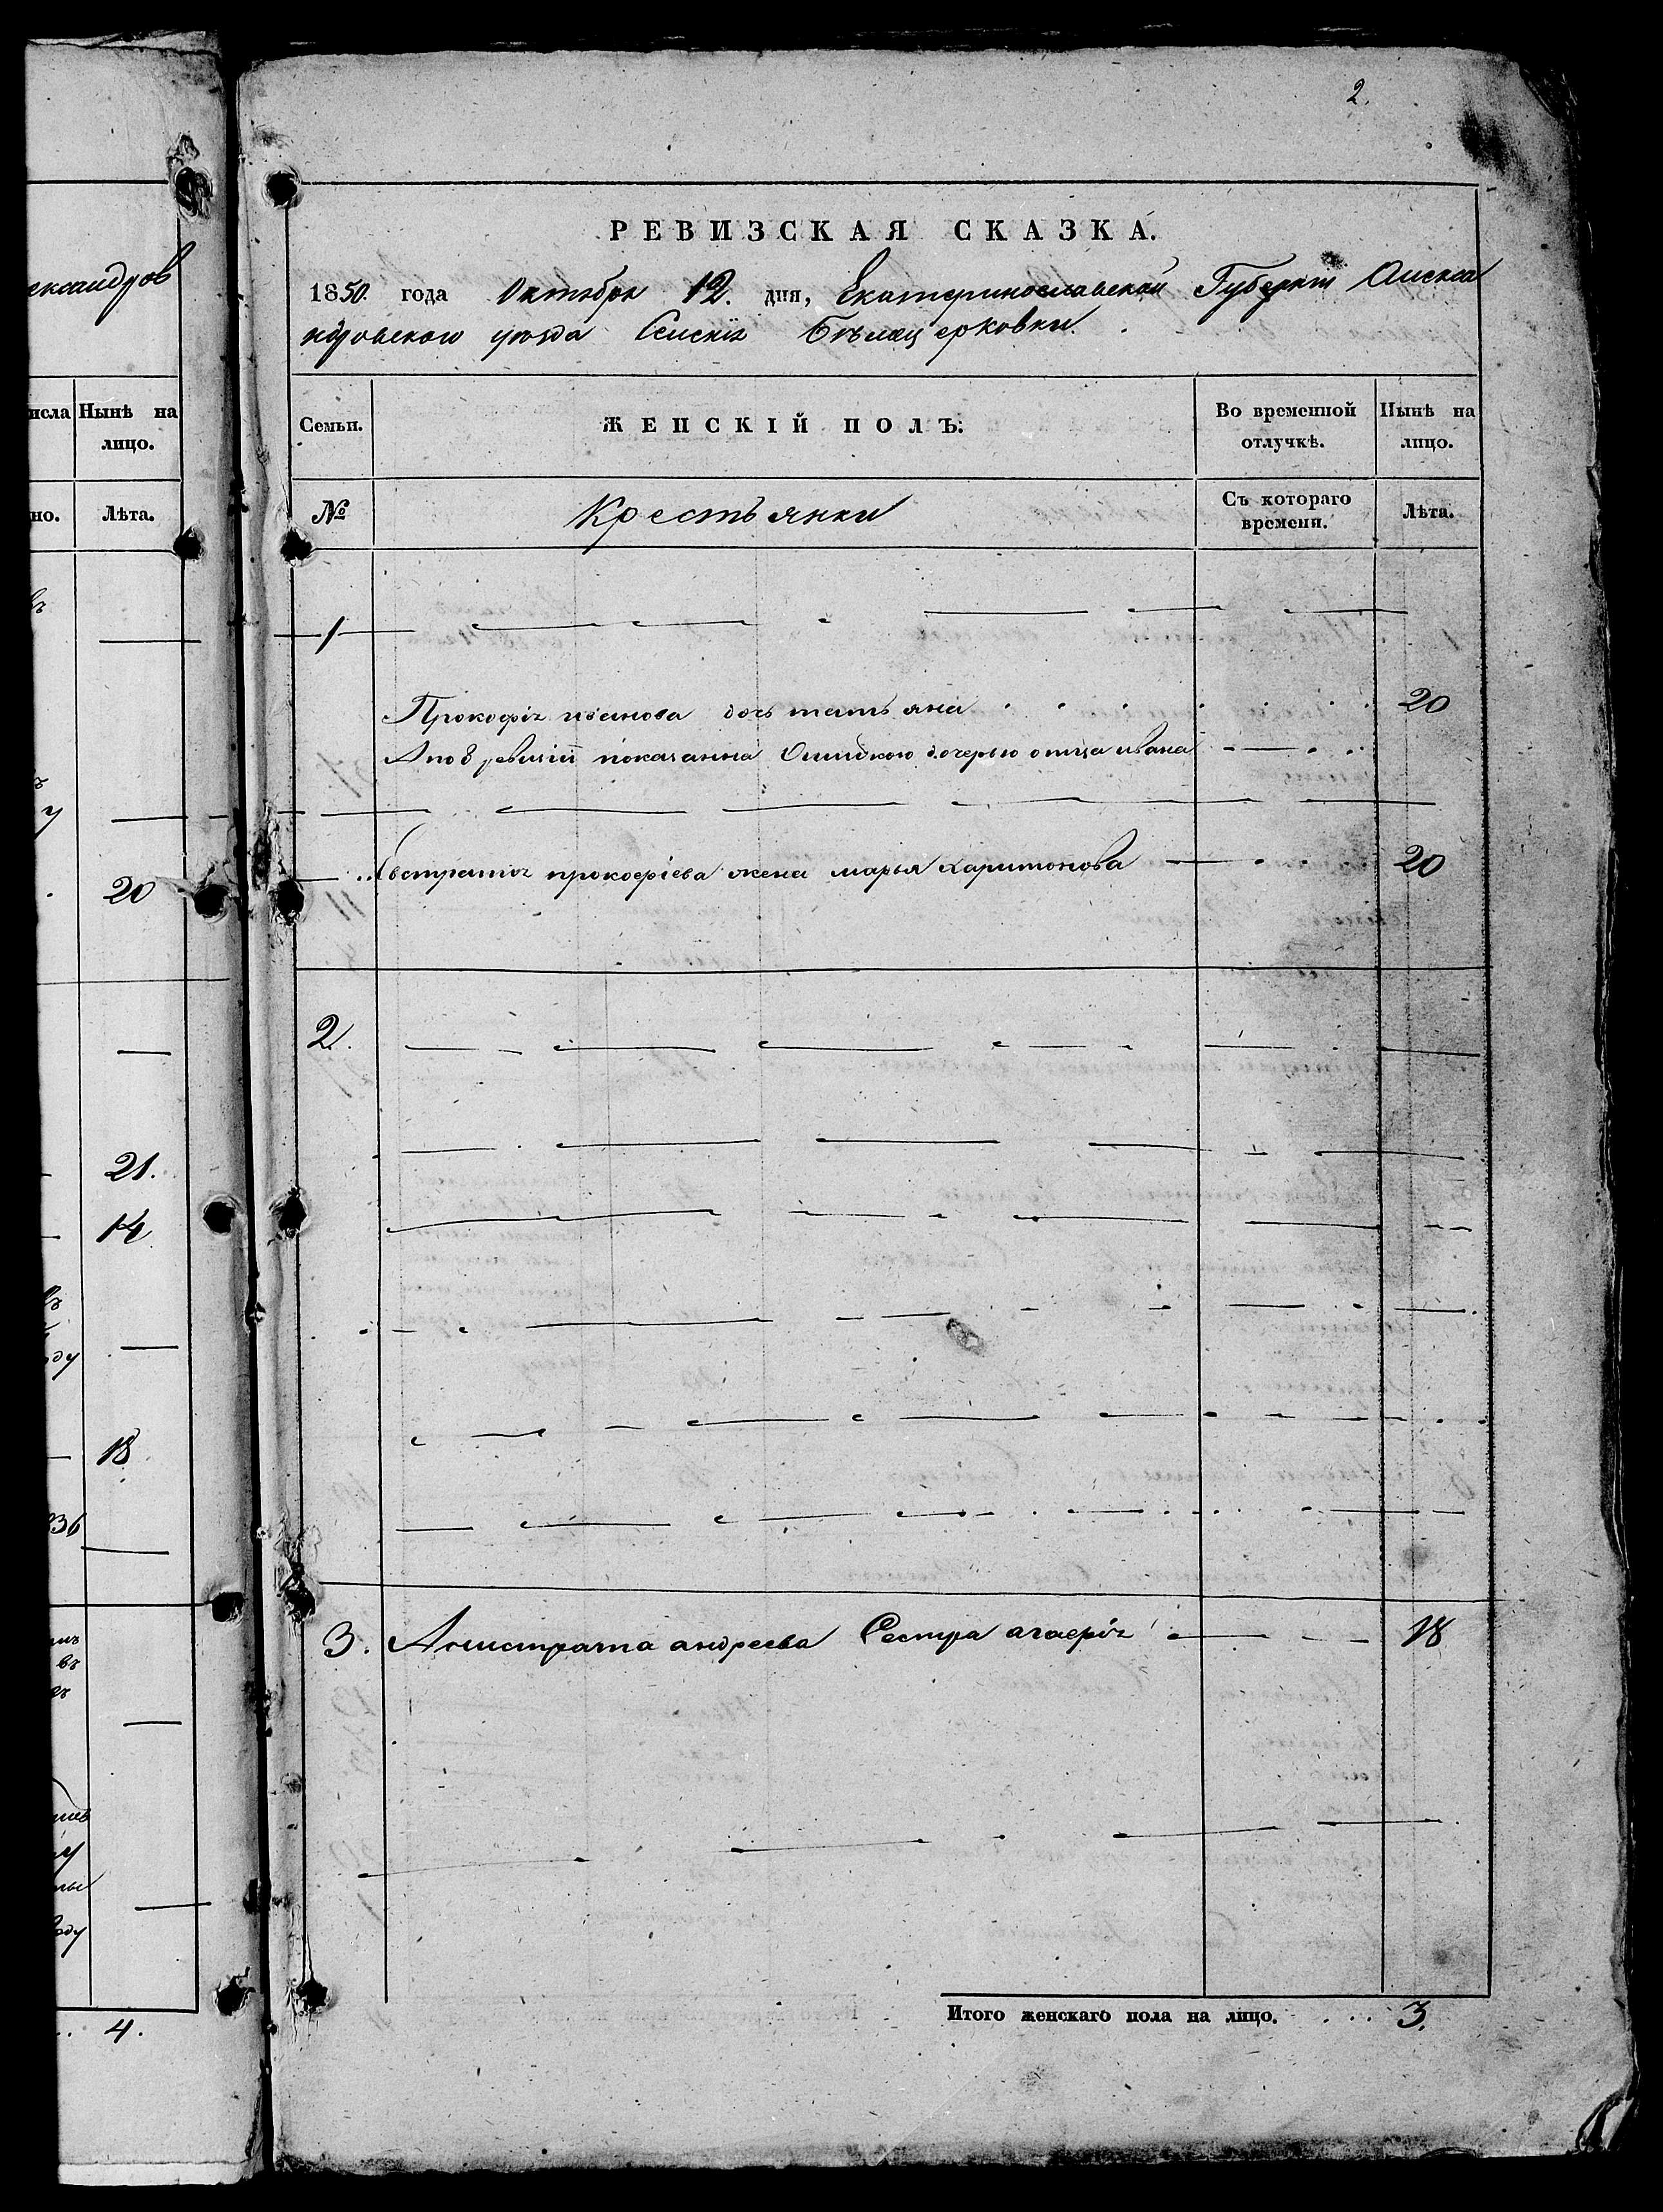 ександров
исла Нынѣ на
лицо.
но. Лѣта.
20
21.
14
ду
18
36
оду
4.
2.
РЕВИЗСКАЯ СКАЗКА.
1850. года Октября 12. дня, Екатеринославской Губерніи Алекса
ндровского уезда Бѣлацерковки.
Семьи. ЖЕНСКІЙ ПОЛЪ: Во временной отлучкѣ. Нынѣ на лицо.
№ Крестьянки Съ котораго времени. Лѣта.
1
Прокофія иванова дочь татьяна 20
А по 8 ревизіи показанна Ошибкою дочерью отца ивана
Евстратія прокофіева жена марья харитонова 20
2.
3. андреева Сестра 18
Итого женскаго пола на лицо. . . . 3.